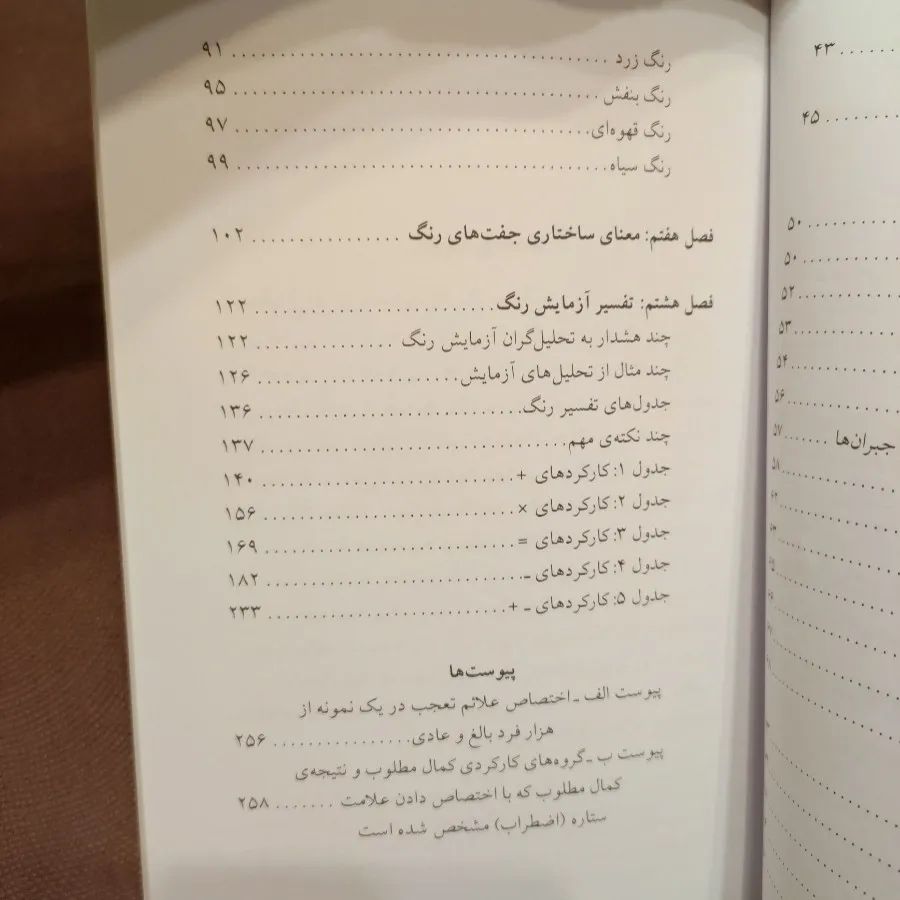 رنگ زرد ........ ۹۱
رنگ بنفش ........ ۹۵
رنگ قهوه‌ای ........ ۹۷
رنگ سیاه ........ ۹۹
فصل هفتم: معنای ساختاری جفت‌های رنگ ........ ۱۰۲
فصل هشتم: تفسیر آزمایش رنگ ........ ۱۲۲
چند هشدار به تحلیل‌گران آزمایش رنگ ........ ۱۲۲
چند مثال از تحلیل‌های آزمایش ........ ۱۲۶
جدول‌های تفسیر رنگ ........ ۱۳۶
چند نکته‌ی مهم ........ ۱۳۷
جدول ۱: کارکردهای + ........ ۱۴۰
جدول ۲: کارکردهای × ........ ۱۵۶
جدول ۳: کارکردهای = ........ ۱۶۹
جدول ۴: کارکردهای ـ ........ ۱۸۲
جدول ۵: کارکردهای ـ + ........ ۲۳۳
پیوست‌ها
پیوست الف ـ اختصاص علائم تعجب در یک نمونه از
هزار فرد بالغ و عادی ........ ۲۵۶
پیوست ب ـ گروه‌های کارکردی کمال مطلوب و نتیجه‌ی
کمال مطلوب که با اختصاص دادن علامت ........ ۲۵۸
ستاره (اضطراب) مشخص شده است
........ ۴۳
........ ۴۵
........ ۵۰
........ ۵۰
........ ۵۲
........ ۵۳
........ ۵۴
........ ۵۶
جبران‌ها ........ ۵۷
........ ۵۸
........ ۶۲